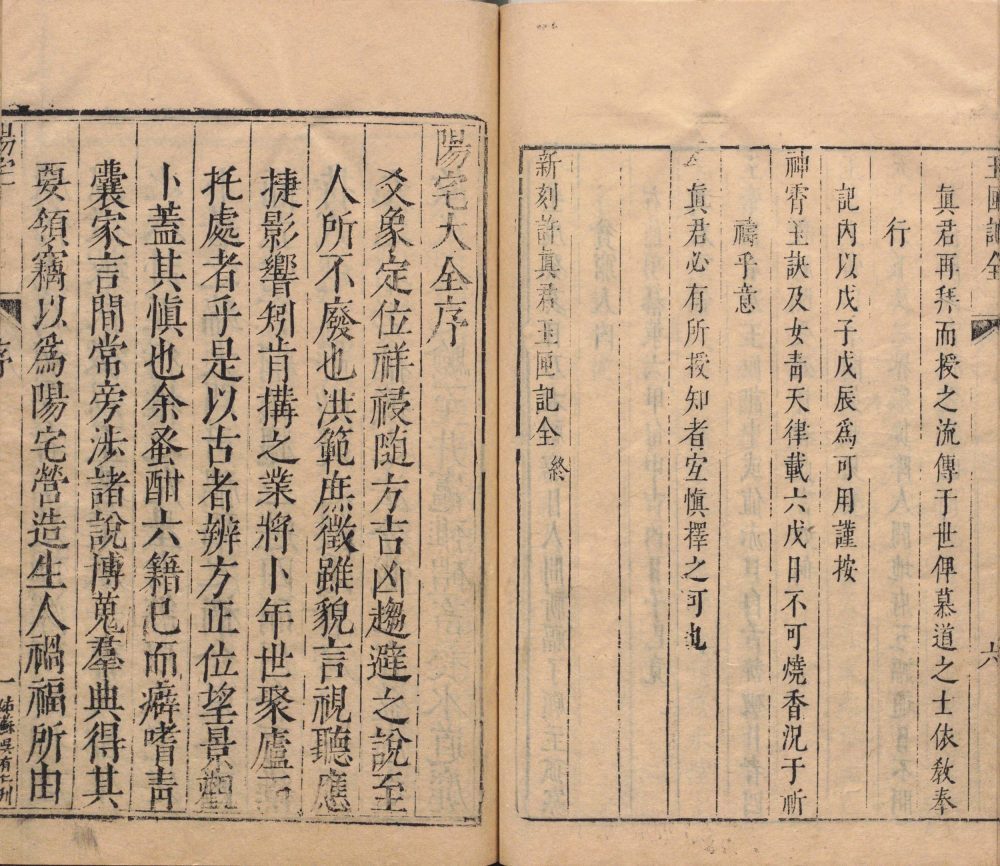 真君再拜而授之流傳于世俾慕道之士依敎奉
行
記內以戊子戊辰爲可用謹按
神霄玉訣及女青天律載六戊日不可燒香況于祈
禱乎意
真君必有所授知者宜慎擇之可也
新刻許真君玉匣記全 終
陽宅大全序
爻象定位祥祲随方吉凶趨避之說至
人所不廢也洪範庶徵雖貌言視聽應
捷影響矧肯搆之業將卜年世聚廬而
托處者乎是以古者辨方正位望景觀
卜蓋其慎也余蚤酣六籍已而癖嗜青
囊家言間常旁涉諸說博蒐羣典得其
要領竊以爲陽宅營造生人禍福所由
陽宅
序
一